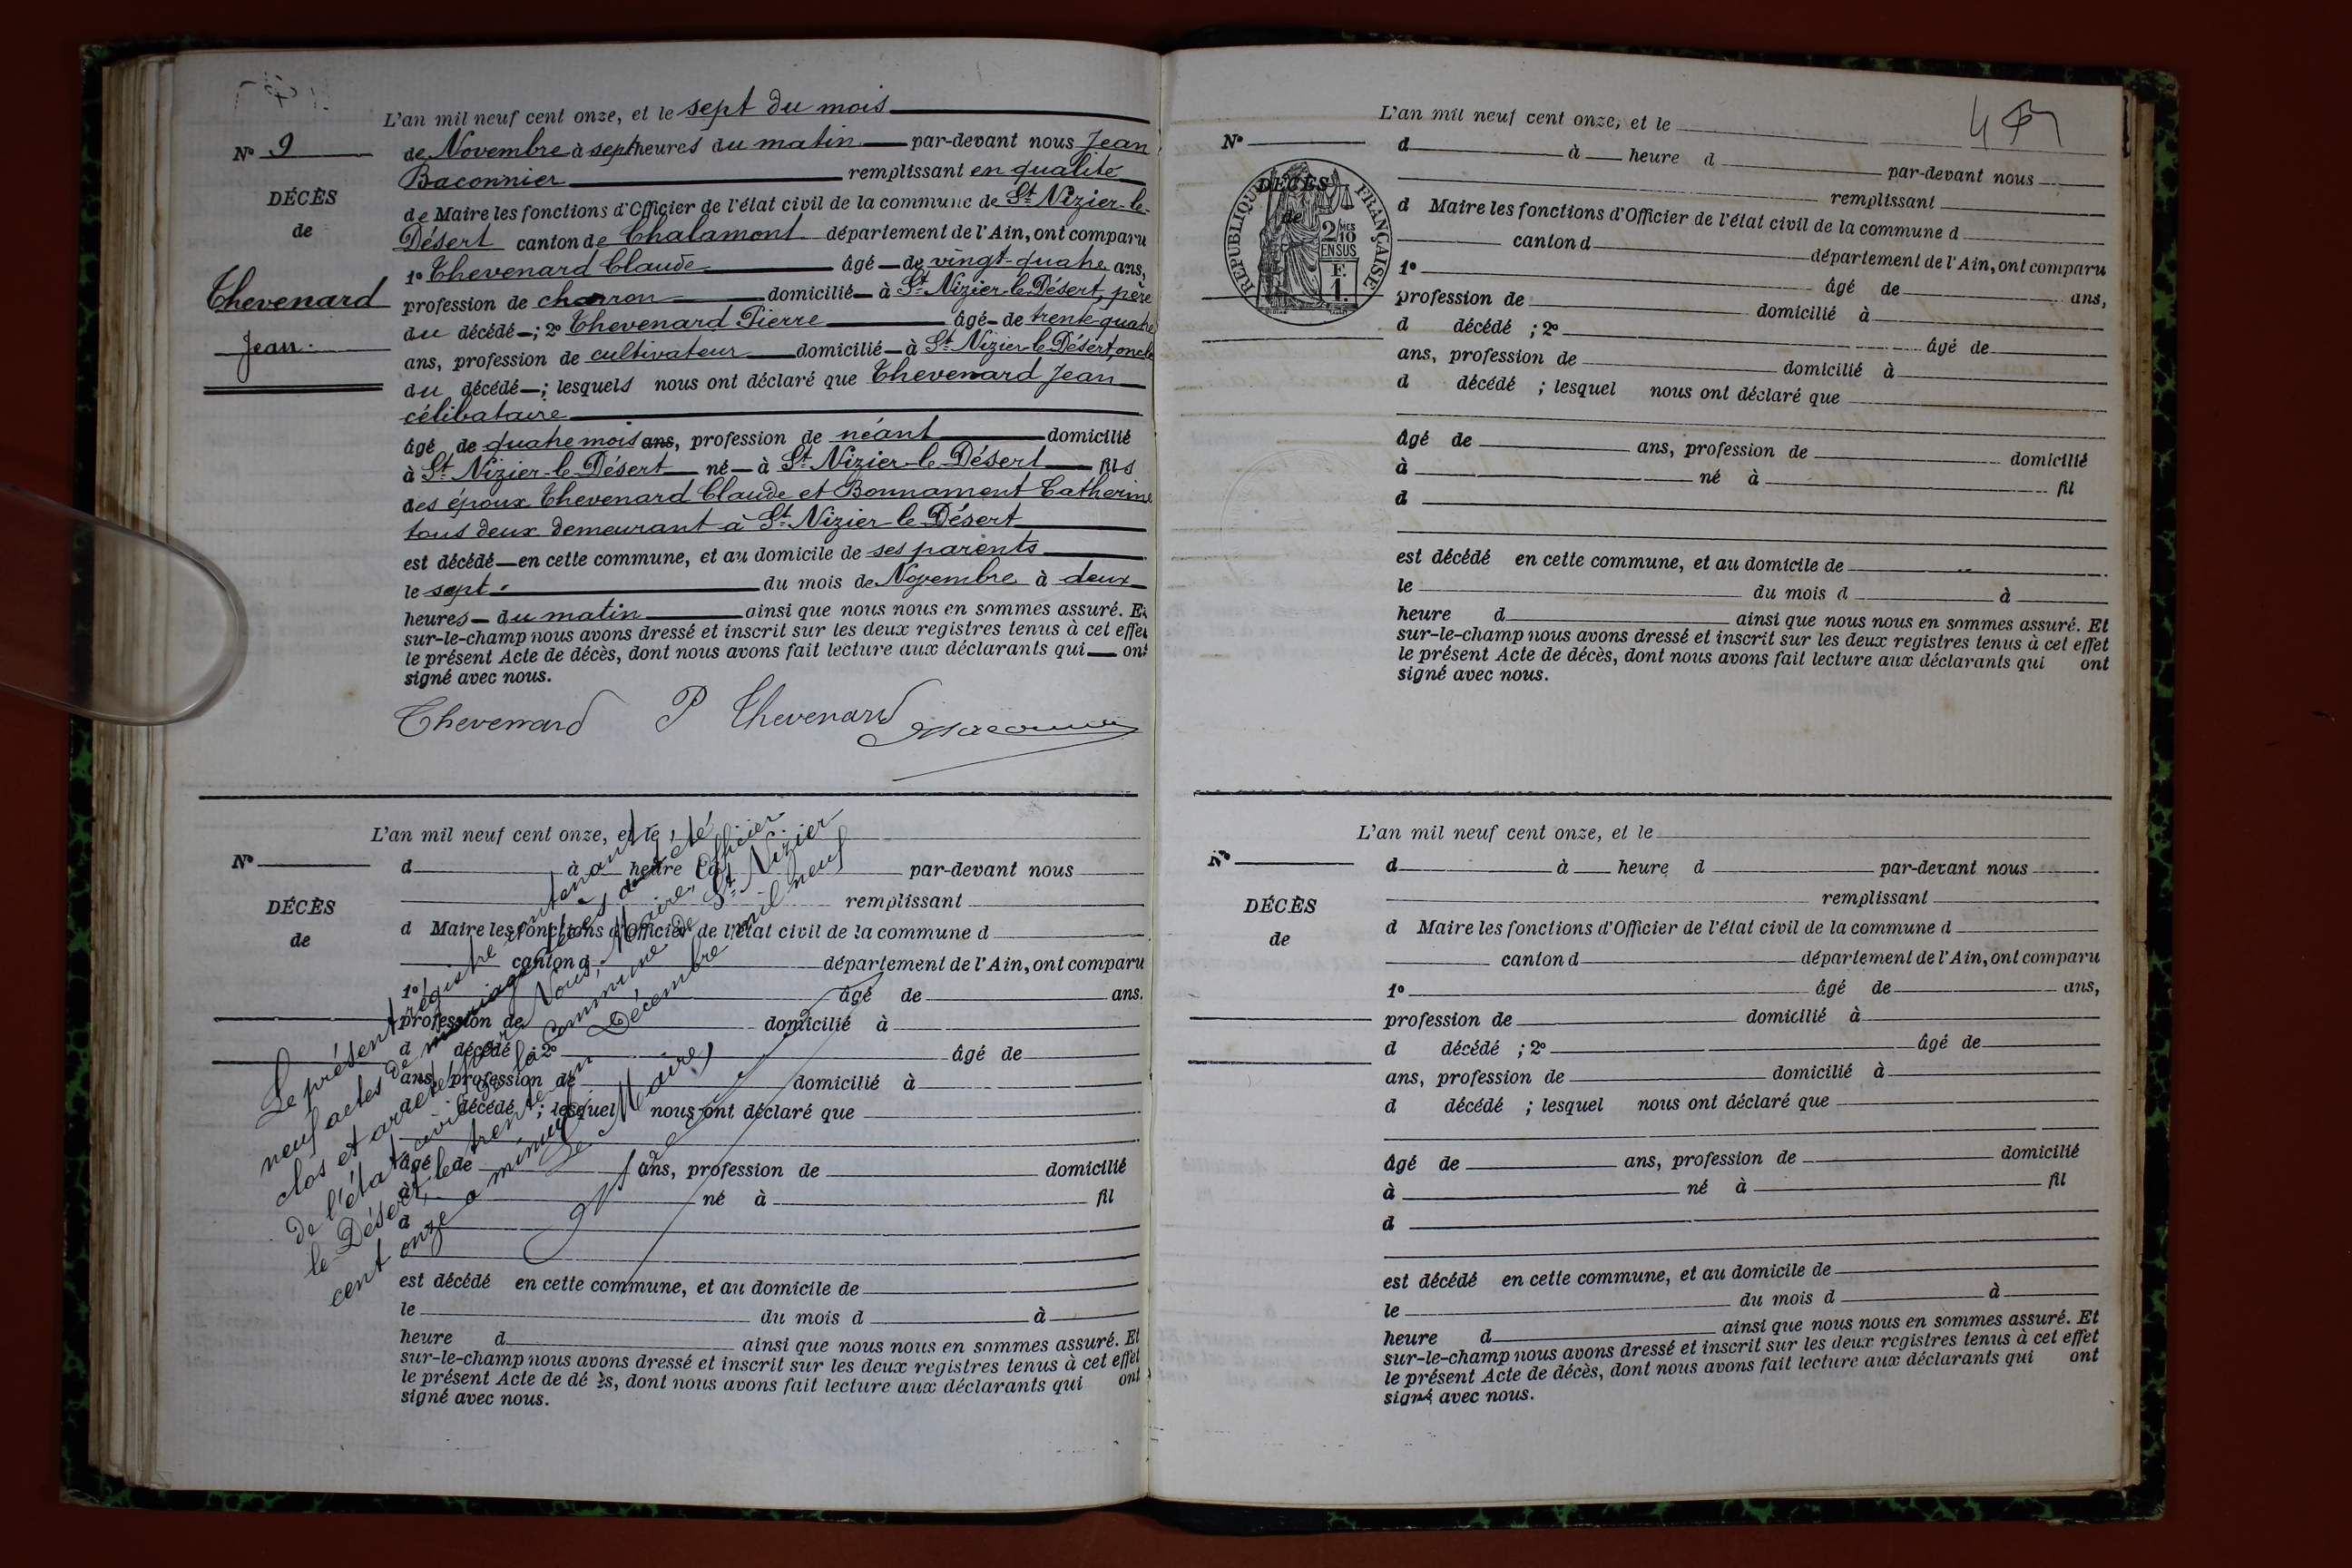 L'an mil neuf cent onze, et le sept du mois
N° 9
de Novembre à sept heures du matin par-devant nous Jean
Baconnier remplissant en qualité
DÉCÈS
de
de Maire les fonctions d'Officier de l'état civil de la commune de St. Nizier-le-
Désert canton de Chalamont département de l'Ain, ont comparu
1° Thevenard Claude âgé de vingt-quatre ans,
Thevenard
Jean.
profession de charron domicilié à St. Nizier-le-Désert, père
du décédé ; 2° Thevenard Pierre âgé de trente-quatre
ans, profession de cultivateur domicilié à St. Nizier-le-Désert, oncle
du décédé ; lesquels nous ont déclaré que Thevenard Jean
célibataire
âgé de quatre mois ans, profession de néant domicilié
à St. Nizier-le-Désert né à St. Nizier-le-Désert fils
des époux Thevenard Claude et Bonnament Catherine
tous deux demeurant à St. Nizier-le-Désert
est décédé en cette commune, et au domicile de ses parents
le sept du mois de Novembre à deux
heures du matin ainsi que nous nous en sommes assuré. Et
sur-le-champ nous avons dressé et inscrit sur les deux registres tenus à cet effet
le présent Acte de décès, dont nous avons fait lecture aux déclarants qui ont
signé avec nous.
Thevenard P Thevenard
L'an mil neuf cent onze, et le
N°
d à heure d par-devant nous
remplissant
DÉCÈS
de
d Maire les fonctions d'Officier de l'état civil de la commune d
canton d département de l'Ain, ont comparu
1° âgé de ans.
profession de domicilié à
d décédé ; 2° âgé de
ans, profession de domicilié à
d décédé ; lesquel nous ont déclaré que
âgé de ans, profession de domicilié
à né à fil
d
est décédé en cette commune, et au domicile de
le du mois d à
heure d ainsi que nous nous en sommes assuré. Et
sur-le-champ nous avons dressé et inscrit sur les deux registres tenus à cet effet
le présent Acte de décès, dont nous avons fait lecture aux déclarants qui ont
signé avec nous.
Le présent registre contenant
neuf actes de mariage décès a été
clos et arrêté par Nous, Maire, Officier
de l'état civil de la commune de St. Nizier-
le-Désert, le trente-un Décembre mil neuf
cent onze à minuit
Le Maire,
L'an mil neuf cent onze, et le
N°
d à heure d par-devant nous
remplissant
DÉCÈS
de
RÉPUBLIQUE FRANÇAISE
2 MES
10
EN SUS
F.
1.
d Maire les fonctions d'Officier de l'état civil de la commune d
canton d département de l'Ain, ont comparu
1° âgé de ans,
profession de domicilié à
d décédé ; 2° âgé de
ans, profession de domicilié à
d décédé ; lesquel nous ont déclaré que
âgé de ans, profession de domicilié
à né à fil
d
est décédé en cette commune, et au domicile de
le du mois d à
heure d ainsi que nous nous en sommes assuré. Et
sur-le-champ nous avons dressé et inscrit sur les deux registres tenus à cet effet
le présent Acte de décès, dont nous avons fait lecture aux déclarants qui ont
signé avec nous.
L'an mil neuf cent onze, et le
N°
d à heure d par-devant nous
remplissant
DÉCÈS
de
d Maire les fonctions d'Officier de l'état civil de la commune d
canton d département de l'Ain, ont comparu
1° âgé de ans,
profession de domicilié à
d décédé ; 2° âgé de
ans, profession de domicilié à
d décédé ; lesquel nous ont déclaré que
âgé de ans, profession de domicilié
à né à fil
d
est décédé en cette commune, et au domicile de
le du mois d à
heure d ainsi que nous nous en sommes assuré. Et
sur-le-champ nous avons dressé et inscrit sur les deux registres tenus à cet effet
le présent Acte de décès, dont nous avons fait lecture aux déclarants qui ont
signé avec nous.